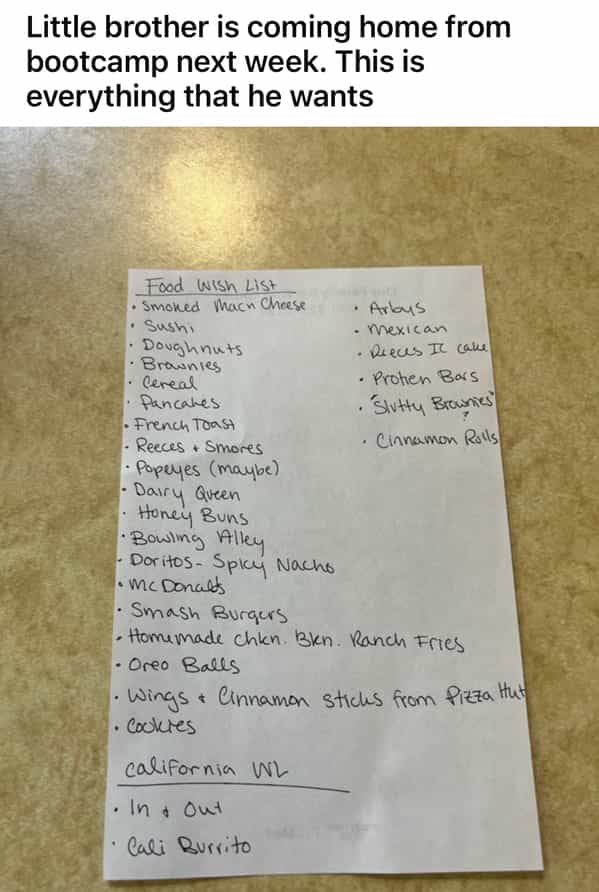 Little brother is coming home from
bootcamp next week. This is
everything that he wants
Food Wish List
• Smoked Mac n Cheese
• Sushi
• Doughnuts
• Brownies
• Cereal
• Pancakes
• French Toast
• Reeces + Smores
• Popeyes (maybe)
• Dairy Queen
• Honey Buns
• Bowling Alley
• Doritos - Spicy Nacho
• McDonalds
• Smash Burgers
• Homemade Chkn. Bkn. Ranch Fries
• Oreo Balls
• Wings + Cinnamon sticks from Pizza Hut
• Cookies
• Arbys
• Mexican
• Reeces IC cake
• Protien Bars
• "Slutty Brownies"
?
• Cinnamon Rolls
California WL
• In + Out
• Cali Burrito